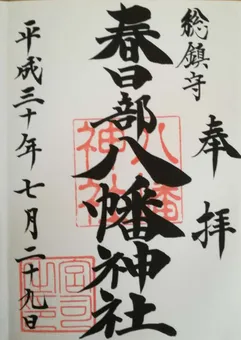 奉拝
総鎮守
春日部八幡神社
八幡
神社
平成三十年七月二十九日